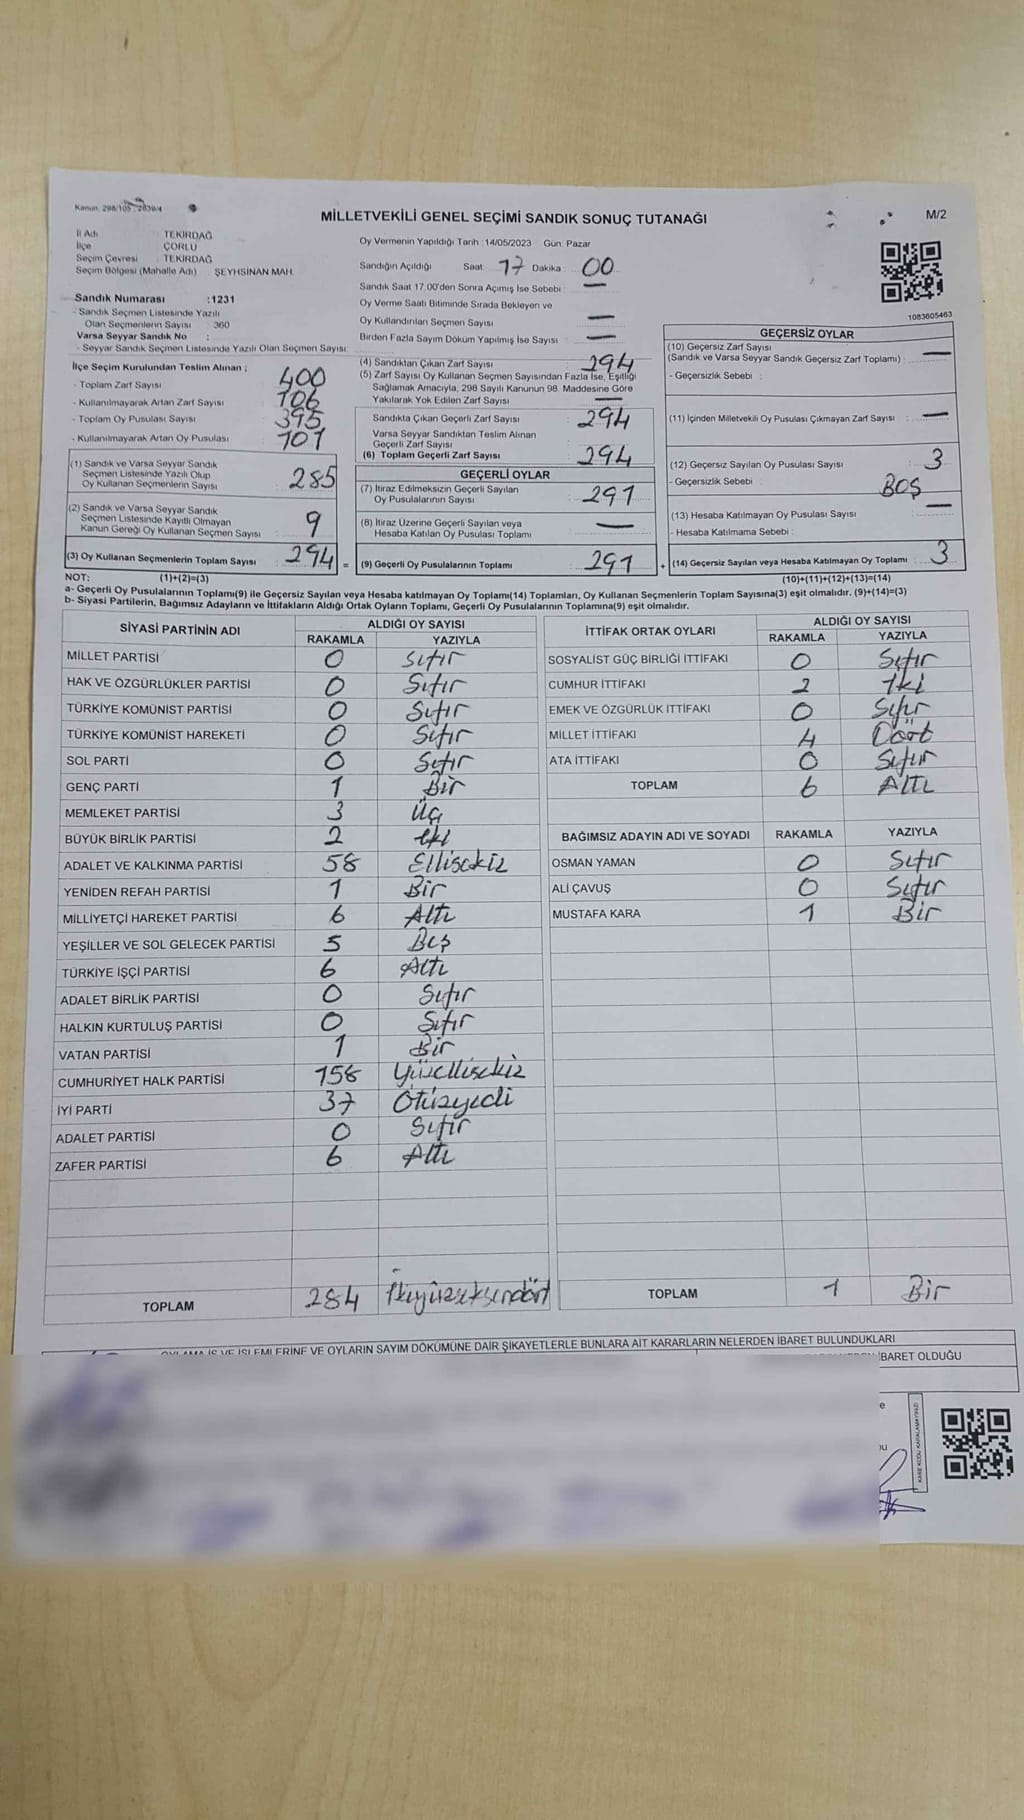 Kanun. 298/105 - 2839/4
MİLLETVEKİLİ GENEL SEÇİMİ SANDIK SONUÇ TUTANAĞI
M/2
İl Adı : TEKİRDAĞ
İlçe : ÇORLU
Seçim Çevresi : TEKİRDAĞ
Seçim Bölgesi (Mahalle Adı) : ŞEYHSİNAN MAH.
Sandık Numarası :1231
- Sandık Seçmen Listesinde Yazılı
Olan Seçmenlerin Sayısı : 360
Varsa Seyyar Sandık No :
- Seyyar Sandık Seçmen Listesinde Yazılı Olan Seçmen Sayısı:
İlçe Seçim Kurulundan Teslim Alınan ;
- Toplam Zarf Sayısı 400
- Kullanılmayarak Artan Zarf Sayısı : 106
- Toplam Oy Pusulası Sayısı : 395
- Kullanılmayarak Artan Oy Pusulası : 101
(1) Sandık ve Varsa Seyyar Sandık
Seçmen Listesinde Yazılı Olup
Oy Kullanan Seçmenlerin Sayısı : 285
(2) Sandık ve Varsa Seyyar Sandık
Seçmen Listesinde Kayıtlı Olmayan
Kanun Gereği Oy Kullanan Seçmen Sayısı : 9
(3) Oy Kullanan Seçmenlerin Toplam Sayısı : 294 =
Oy Vermenin Yapıldığı Tarih :14/05/2023 Gün: Pazar
Sandığın Açıldığı Saat : 17 Dakika : 00
Sandık Saat 17.00'den Sonra Açılmış İse Sebebi : —
Oy Verme Saati Bitiminde Sırada Bekleyen ve
Oy Kullandırılan Seçmen Sayısı : —
Birden Fazla Sayım Döküm Yapılmış İse Sayısı : —
(4) Sandıktan Çıkan Zarf Sayısı : 294
(5) Zarf Sayısı Oy Kullanan Seçmen Sayısından Fazla İse, Eşitliği
Sağlamak Amacıyla, 298 Sayılı Kanunun 98. Maddesine Göre
Yakılarak Yok Edilen Zarf Sayısı : —
Sandıkta Çıkan Geçerli Zarf Sayısı : 294
Varsa Seyyar Sandıktan Teslim Alınan
Geçerli Zarf Sayısı :
(6) Toplam Geçerli Zarf Sayısı : 294
GEÇERLİ OYLAR
(7) İtiraz Edilmeksizin Geçerli Sayılan
Oy Pusulalarının Sayısı : 291
(8) İtiraz Üzerine Geçerli Sayılan veya
Hesaba Katılan Oy Pusulası Toplamı : —
(9) Geçerli Oy Pusulalarının Toplamı : 291 +
1083605463
GEÇERSİZ OYLAR
(10) Geçersiz Zarf Sayısı
(Sandık ve Varsa Seyyar Sandık Geçersiz Zarf Toplamı) : —
- Geçersizlik Sebebi :
(11) İçinden Milletvekili Oy Pusulası Çıkmayan Zarf Sayısı : —
(12) Geçersiz Sayılan Oy Pusulası Sayısı : 3
- Geçersizlik Sebebi : BOŞ
(13) Hesaba Katılmayan Oy Pusulası Sayısı : —
- Hesaba Katılmama Sebebi :
(14) Geçersiz Sayılan veya Hesaba Katılmayan Oy Toplamı : 3
NOT: (1)+(2)=(3) (10)+(11)+(12)+(13)=(14)
a- Geçerli Oy Pusulalarının Toplamı(9) ile Geçersiz Sayılan veya Hesaba katılmayan Oy Toplamı(14) Toplamları, Oy Kullanan Seçmenlerin Toplam Sayısına(3) eşit olmalıdır. (9)+(14)=(3)
b- Siyasi Partilerin, Bağımsız Adayların ve İttifakların Aldığı Ortak Oyların Toplamı, Geçerli Oy Pusulalarının Toplamına(9) eşit olmalıdır.
SİYASİ PARTİNİN ADI ALDIĞI OY SAYISI
RAKAMLA YAZIYLA
MİLLET PARTİSİ 0 Sıfır
HAK VE ÖZGÜRLÜKLER PARTİSİ 0 Sıfır
TÜRKİYE KOMÜNİST PARTİSİ 0 Sıfır
TÜRKİYE KOMÜNİST HAREKETİ 0 Sıfır
SOL PARTİ 0 Sıfır
GENÇ PARTİ 1 Bir
MEMLEKET PARTİSİ 3 Üç
BÜYÜK BİRLİK PARTİSİ 2 İki
ADALET VE KALKINMA PARTİSİ 58 Ellisekiz
YENİDEN REFAH PARTİSİ 1 Bir
MİLLİYETÇİ HAREKET PARTİSİ 6 Altı
YEŞİLLER VE SOL GELECEK PARTİSİ 5 Beş
TÜRKİYE İŞÇİ PARTİSİ 6 Altı
ADALET BİRLİK PARTİSİ 0 Sıfır
HALKIN KURTULUŞ PARTİSİ 0 Sıfır
VATAN PARTİSİ 1 Bir
CUMHURİYET HALK PARTİSİ 158 Yüzellisekiz
İYİ PARTİ 37 Otuzyedi
ADALET PARTİSİ 0 Sıfır
ZAFER PARTİSİ 6 Altı
TOPLAM 284 İkiyüzseksendört
İTTİFAK ORTAK OYLARI ALDIĞI OY SAYISI
RAKAMLA YAZIYLA
SOSYALİST GÜÇ BİRLİĞİ İTTİFAKI 0 Sıfır
CUMHUR İTTİFAKI 2 İki
EMEK VE ÖZGÜRLÜK İTTİFAKI 0 Sıfır
MİLLET İTTİFAKI 4 Dört
ATA İTTİFAKI 0 Sıfır
TOPLAM 6 Altı
BAĞIMSIZ ADAYIN ADI VE SOYADI RAKAMLA YAZIYLA
OSMAN YAMAN 0 Sıfır
ALİ ÇAVUŞ 0 Sıfır
MUSTAFA KARA 1 Bir
TOPLAM 1 Bir
OYLAMA İŞ VE İŞLEMLERİNE VE OYLARIN SAYIM DÖKÜMÜNE DAİR ŞİKAYETLERLE BUNLARA AİT KARARLARIN NELERDEN İBARET BULUNDUKLARI
İBARET OLDUĞU
KARE KODU KARALAMAYINIZ